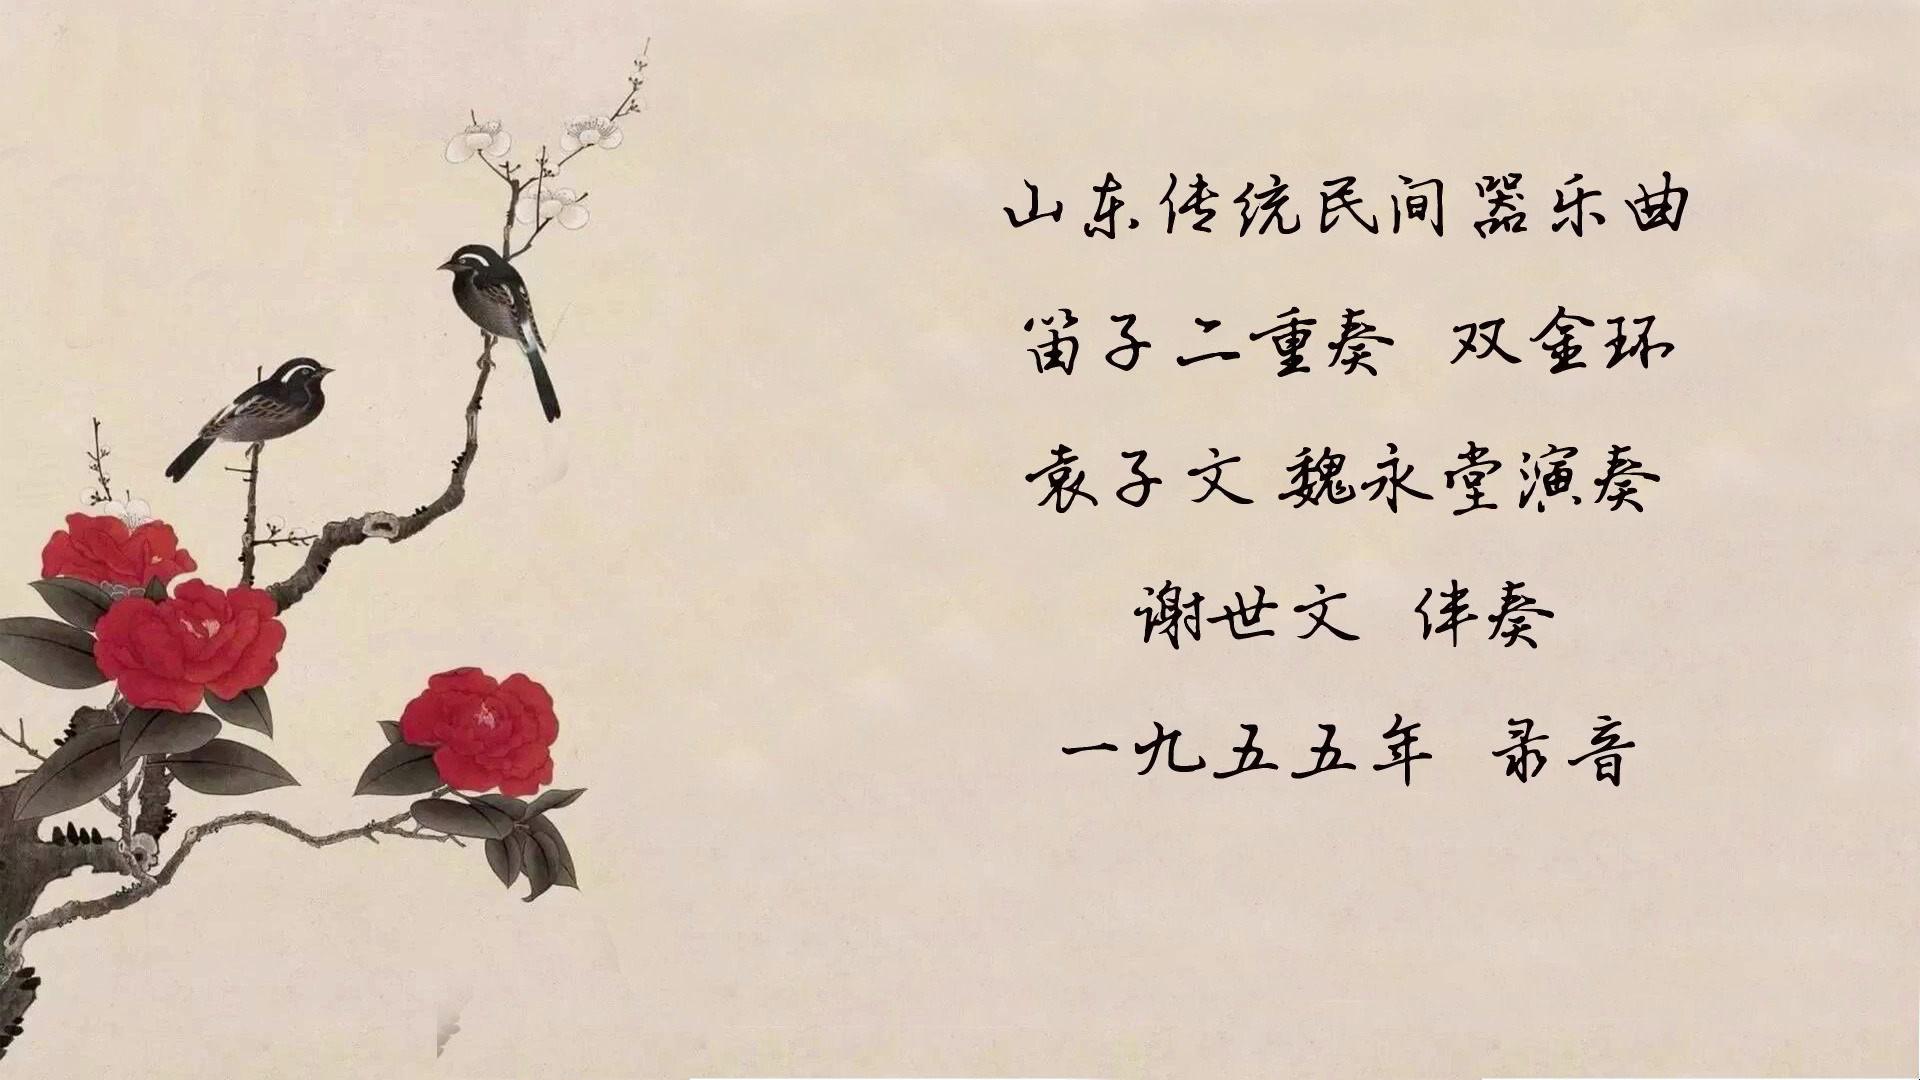 山东传统民间器乐曲
笛子二重奏 双金环
袁子文 魏永堂演奏
谢世文 伴奏
一九五五年 录音